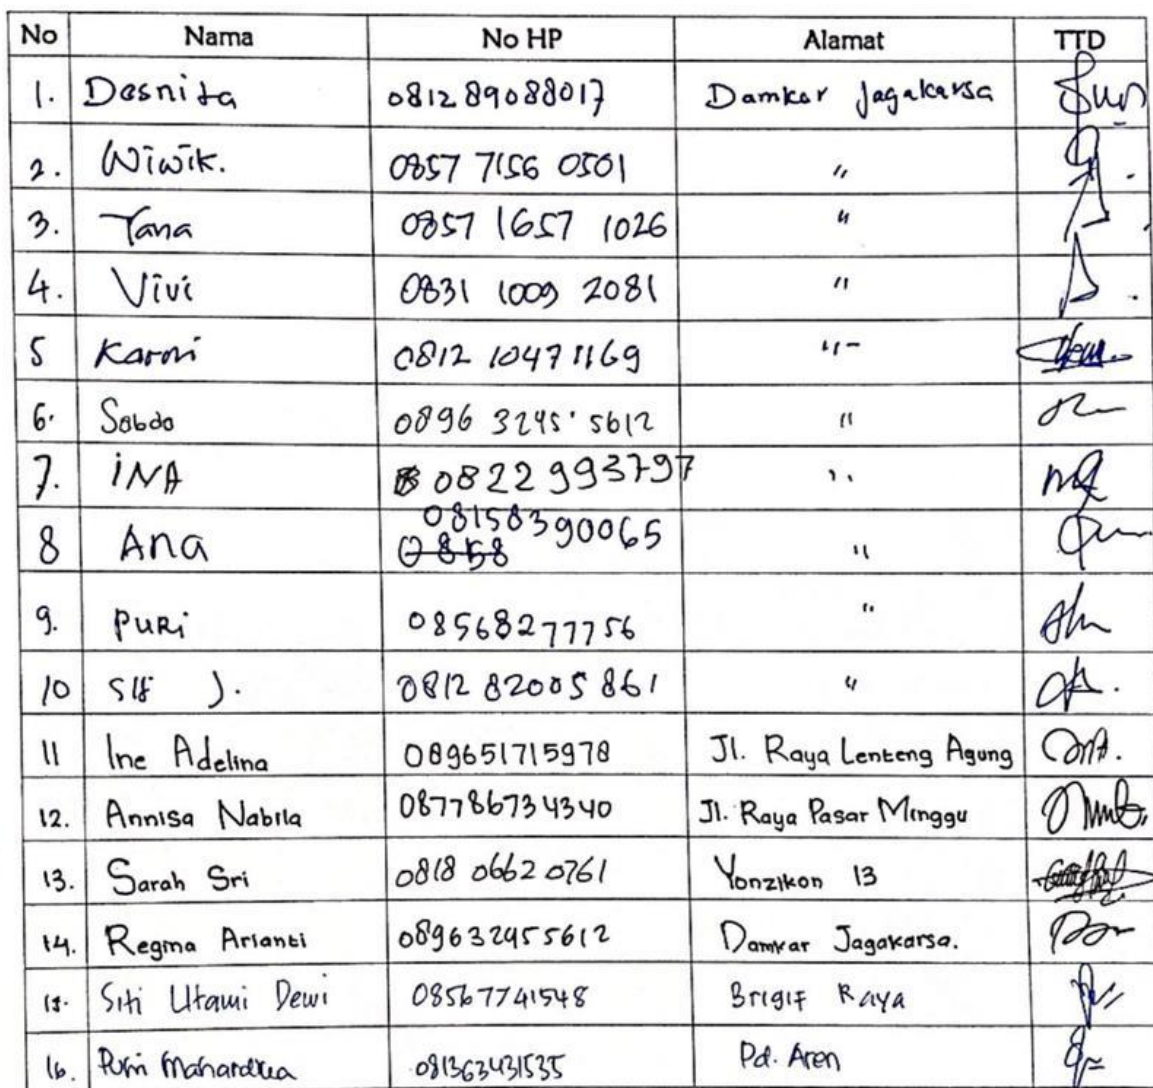 No Nama No HP Alamat TTD
1. Desnita 081289088017 Damkar Jagakarsa
2. Wiwik. 0857 7156 0501 "
3. Yana 0857 1657 1026 "
4. Vivi 0831 1009 2081 "
5 Karmi 0812 1047 1169 " -
6. Sabda 0896 3245 5612 "
7. INA 0822993797 "
8 Ana 08158390065 "
0858
9. PURi 08568277756 "
10 J. 0812 82005 861 "
11 Ine Adelina 089651715978 Jl. Raya Lenteng Agung
12. Annisa Nabila 087786734340 Jl. Raya Pasar Minggu
13. Sarah Sri 0818 0662 0761 Yonzikon 13
14. Regina Arianti 089632455612 Damkar Jagakarsa.
15. Siti Utami Dewi 08567741548 Brigif Raya
16. Mahardika 081363431535 Pd. Aren